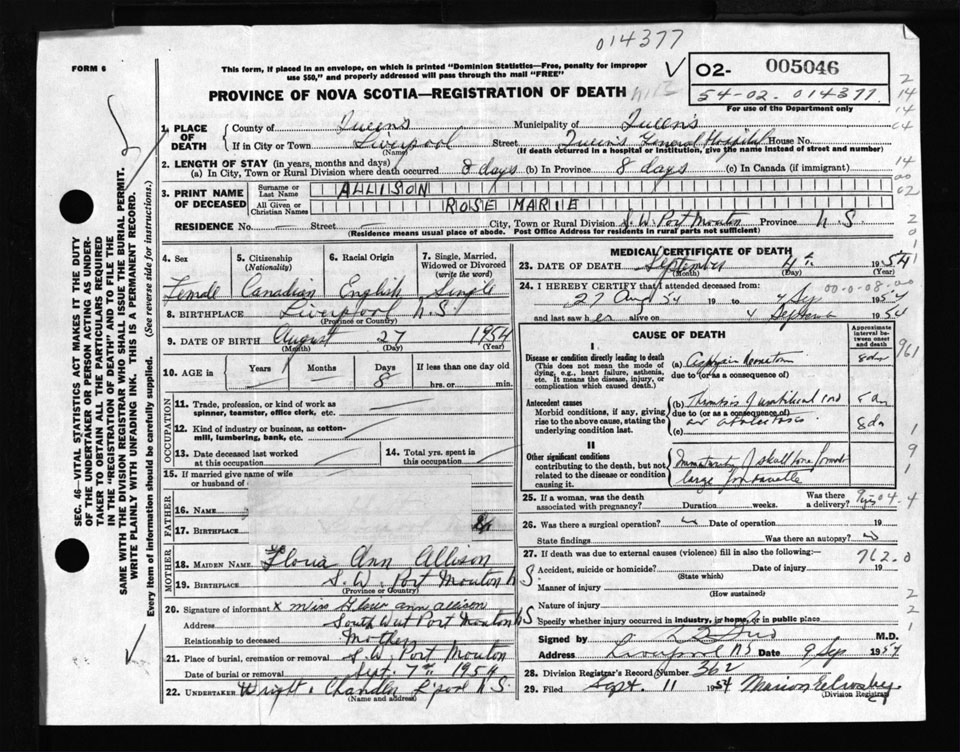 014377
FORM 6
This form, if placed in an envelope, on which is printed "Dominion Statistics—Free, penalty for improper
use $50," and properly addressed will pass through the mail "FREE"
02- 005046
54-02. 014377.
For use of the Department only
PROVINCE OF NOVA SCOTIA—REGISTRATION OF DEATH
1. PLACE OF DEATH
County of Queen's Municipality of Queen's
If in City or Town Liverpool Street Queen's General Hospital House No.
(Name) (If death occurred in a hospital or institution, give the name instead of street and number)
2. LENGTH OF STAY (in years, months and days)
(a) In City, Town or Rural Division where death occurred 8 days (b) In Province 8 days (c) In Canada (if immigrant)
3. PRINT NAME OF DECEASED
Surname or Last Name ALLISON
All Given or Christian Names ROSE MARIE
RESIDENCE No. — Street — City, Town or Rural Division S. W. Port Mouton Province N. S.
(Residence means usual place of abode. Post Office Address for residents in rural parts not sufficient)
4. Sex
Female
5. Citizenship (Nationality)
Canadian
6. Racial Origin
English
7. Single, Married, Widowed or Divorced (write the word)
Single
8. BIRTHPLACE Liverpool N.S.
(Province or Country)
9. DATE OF BIRTH August 27 1954
(Month) (Day) (Year)
10. AGE in Years Months Days 8 If less than one day old
hrs. or min.
OCCUPATION
11. Trade, profession or kind of work as
spinner, teamster, office clerk, etc.
12. Kind of industry or business, as cotton-
mill, lumbering, bank, etc.
13. Date deceased last worked
at this occupation
14. Total yrs. spent in
this occupation
15. If married give name of wife
or husband of
FATHER
16. NAME
17. BIRTHPLACE
MOTHER
18. MAIDEN NAME Ann Allison
19. BIRTHPLACE S. W. Port Mouton N S
(Province or Country)
20. Signature of informant x Miss ann allison
Address South West Port Mouton N S
Relationship to deceased Mother
21. Place of burial, cremation or removal S. W. Port Mouton
Date of burial or removal Sept. 7th 1954
22. UNDERTAKER Wright & Chandler N.S.
(Name and address)
MEDICAL CERTIFICATE OF DEATH
23. DATE OF DEATH September 4th 1954
(Month) (Day) (Year)
24. I HEREBY CERTIFY that I attended deceased from:
27 Aug 54 19 to 4 Sep 1954
and last saw her alive on 4 Septemb 1954
CAUSE OF DEATH
Approximate interval between onset and death
I
Disease or condition directly leading to death
(This does not mean the mode of dying, e.g., heart failure, asthenia, etc. It means the disease, injury, or complication which caused death.)
(a)
due to (or as a consequence of)
Antecedent causes
Morbid conditions, if any, giving rise to the above cause, stating the underlying condition last.
(b) Thrombosis of umbilical cord
due to (or as a consequence of)
(c)
II
Other significant conditions
contributing to the death, but not related to the disease or condition causing it.
Immaturity skull bone
large fontanelle
25. If a woman, was the death
associated with pregnancy? Duration weeks. Was there a delivery?
26. Was there a surgical operation? Date of operation 19
State findings Was there an autopsy?
27. If death was due to external causes (violence) fill in also the following:—
762.0
Accident, suicide or homicide? Date of injury 19
(State which)
Manner of injury
(How sustained)
Nature of injury
Specify whether injury occurred in industry, in home, or in public place
Signed by M.D.
Address Liverpool NS Date 9 Sep 1954
28. Division Registrar's Record Number 362
29. Filed Sept. 11 1954 Marion
(Division Registrar)
SEC. 46—VITAL STATISTICS ACT MAKES IT THE DUTY
OF THE UNDERTAKER OR PERSON ACTING AS UNDER-
TAKER TO OBTAIN ALL THE PARTICULARS REQUIRED
IN THE "REGISTRATION OF DEATH" AND TO FILE THE
SAME WITH THE DIVISION REGISTRAR WHO SHALL ISSUE THE BURIAL PERMIT.
WRITE PLAINLY WITH UNFADING INK. THIS IS A PERMANENT RECORD.
Every item of information should be carefully supplied. (See reverse side for instructions.)